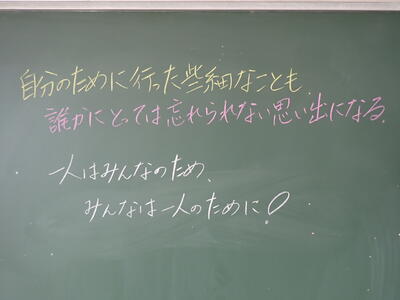 自分のために行った些細なことも
誰かにとっては忘れられない思い出になる.
一人はみんなのため、
みんなは一人のために!